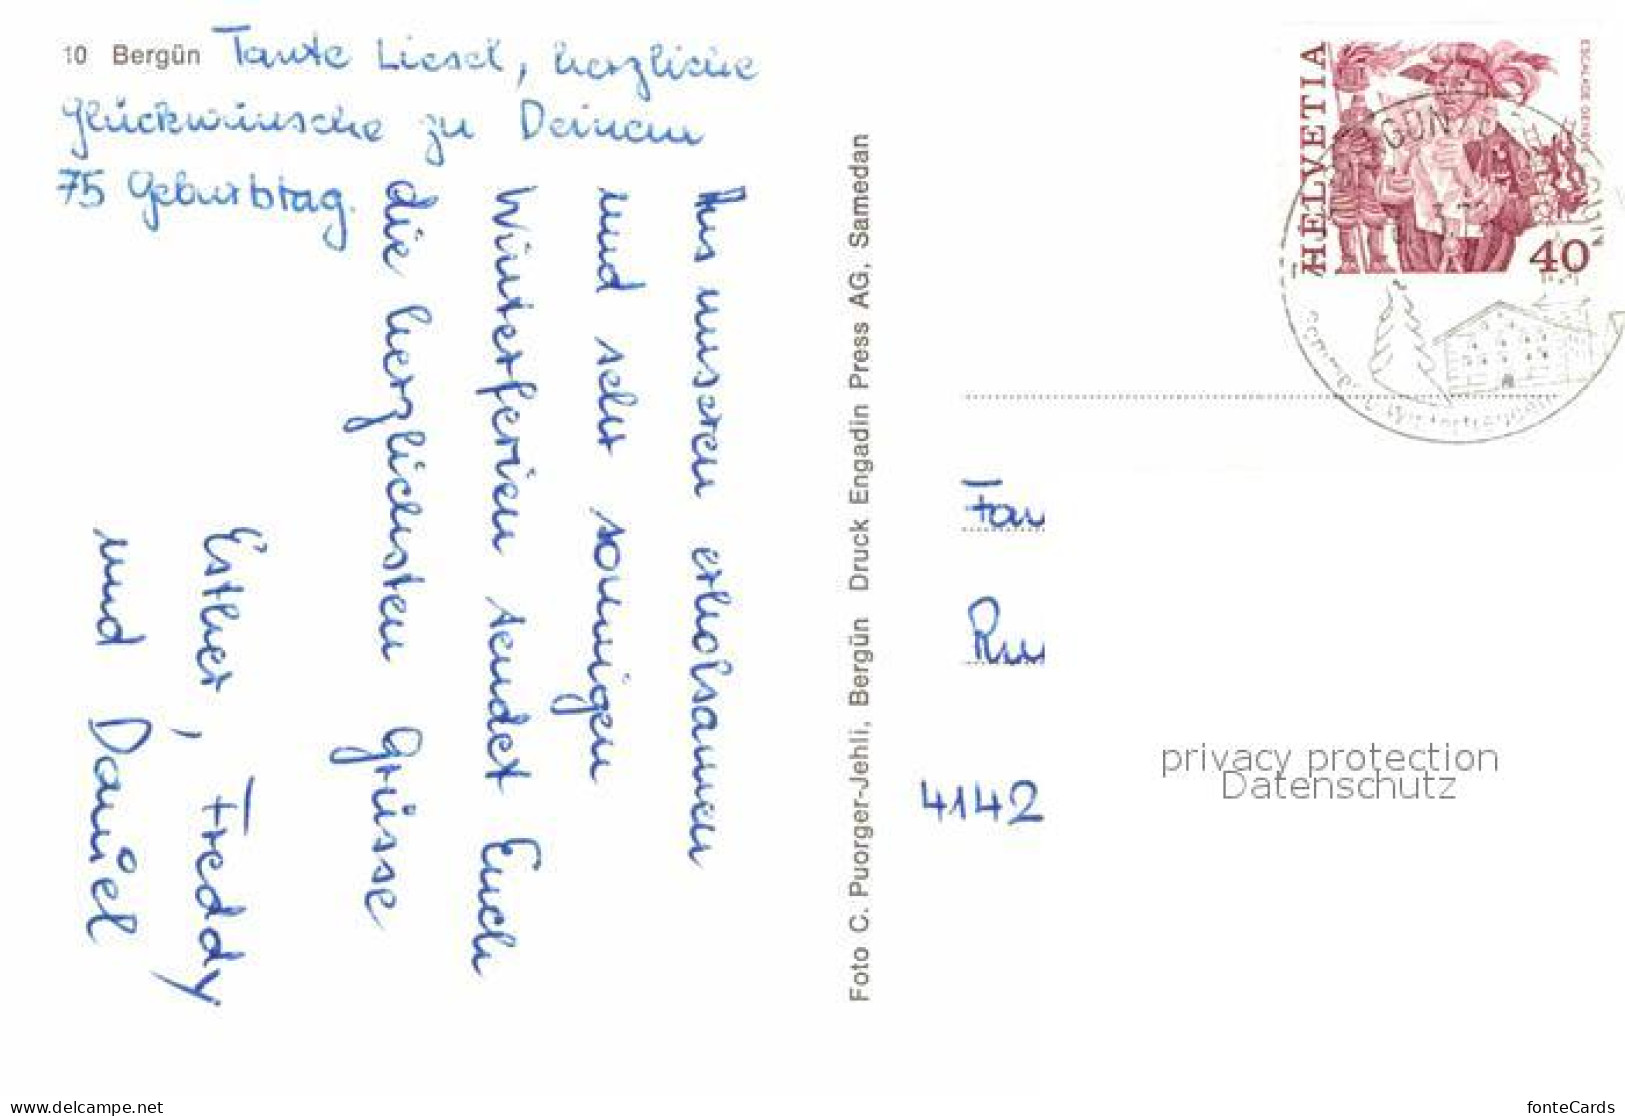 10 Bergün Tante Liesel, herzliche
Glückwünsche zu Deinem
75 Geburtstag.
Aus unseren erholsamen
und sehr sonnigen
Winterferien sendet Euch
die herzlichsten Grüsse
Esther, Freddy
und Daniel
Foto C. Puorger-Jehli, Bergün Druck Engadin Press AG, Samedan
HELVETIA
ESCALADE GENEVE
40
Fam
4142
privacy protection
Datenschutz
www.delcampe.net
fonteCards